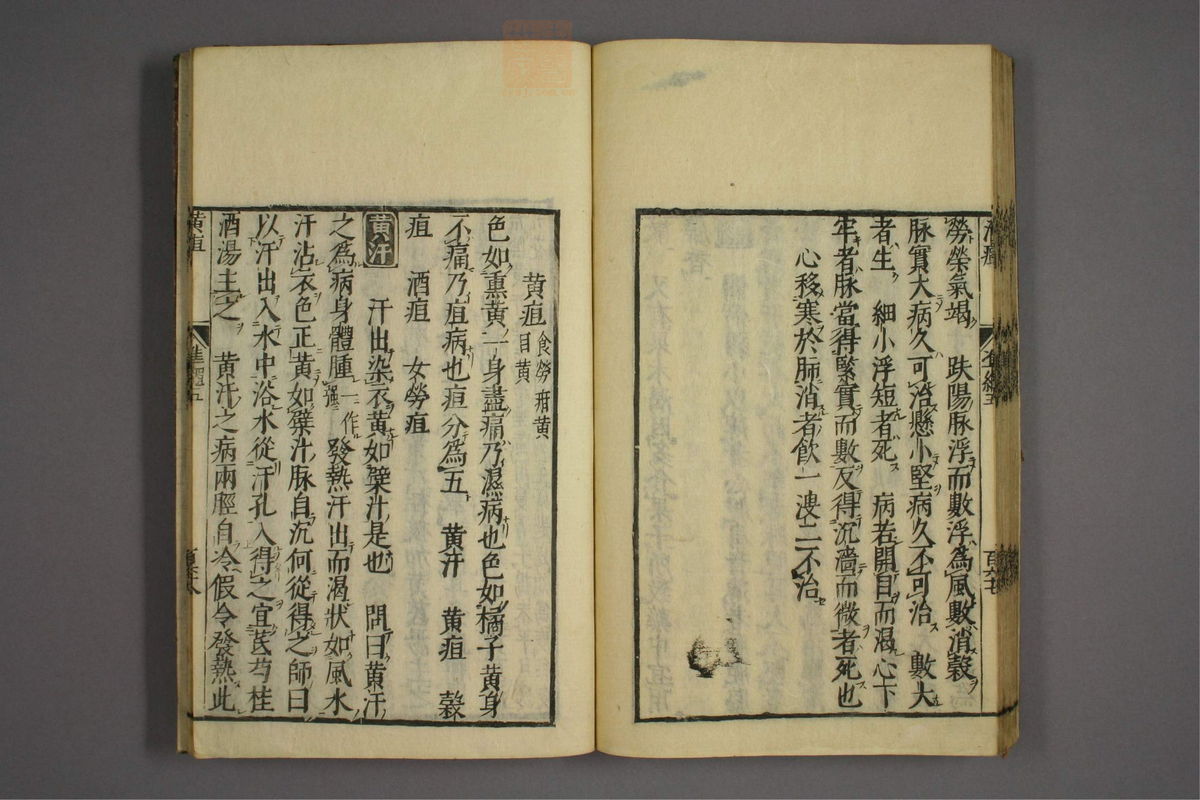 勞榮氣竭　趺陽脉浮而數浮為風數消穀
脉實大病久可治懸小堅病久不可治　數大
者生　細小浮短者死　病若開目而渴心下
牢者脉當得緊實而數反得沉濇而微者死也
心移寒於肺消者飲一溲二不治
黄疸 食勞疳黄 目黄
色如熏黄一身盡痛乃濕病也色如橘子黄身
不痛乃疸病也疸分為五　黄汗　黄疸　穀
疸　酒疸　女勞疸
黄汗　汗出染衣黄如蘗汁是也　問曰黄汗
之為病身體腫 一作 發熱汗出而渴狀如風水
汗沾衣色正黄如蘗汁脉自沉何從得之師曰
以汗出入水中浴水從汗孔入得之宜芪芍桂
酒湯主之　黄汗之病兩脛自冷假令發熱此
黄疸